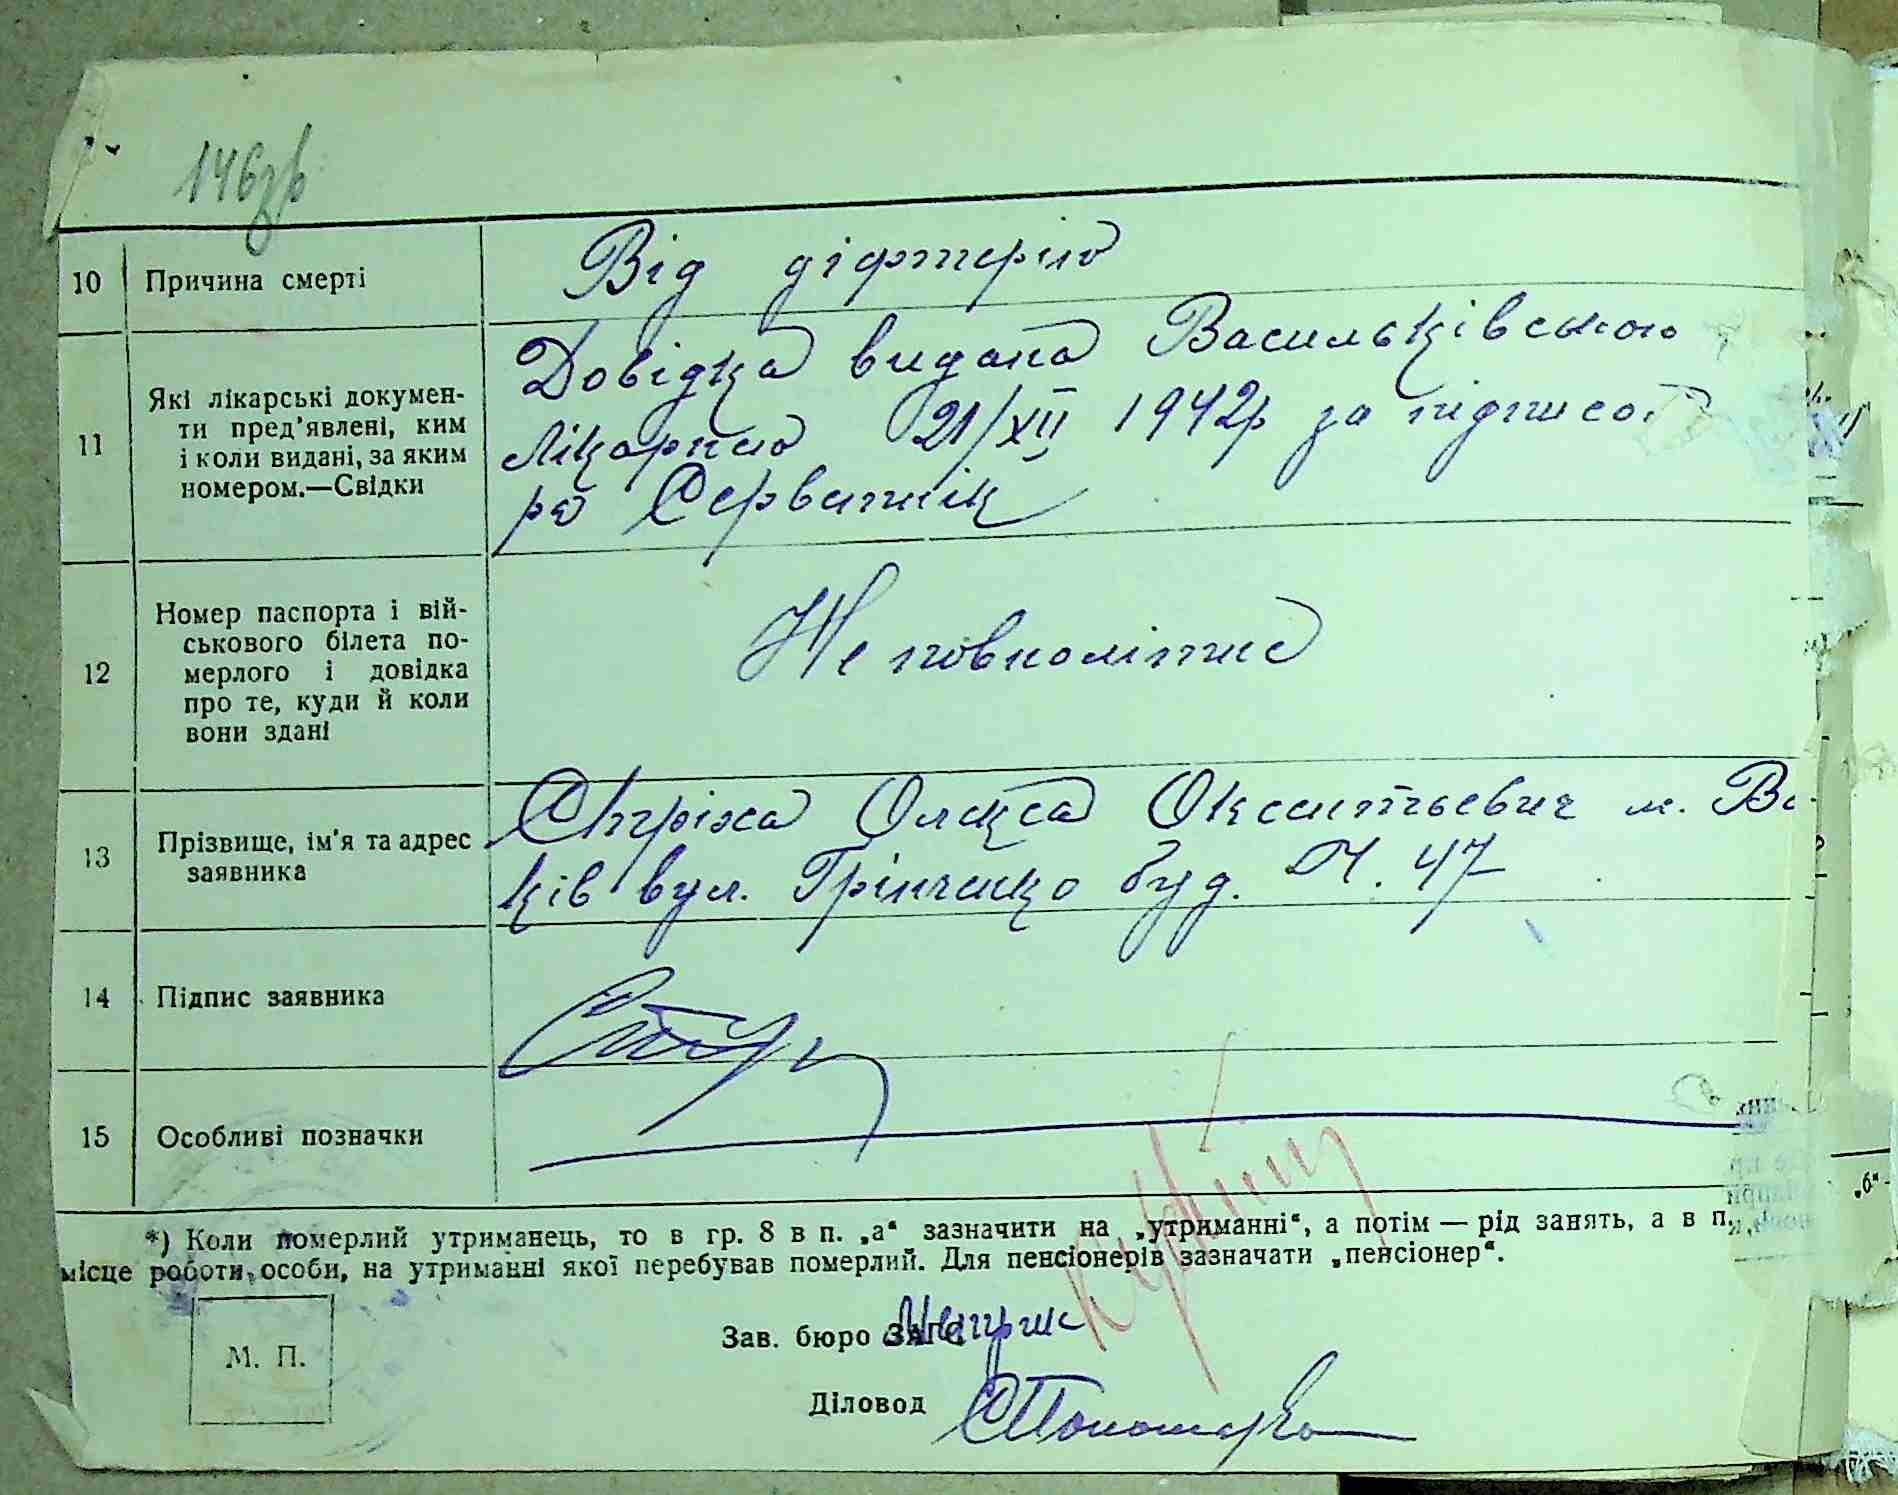 146зв
10 Причина смерті Від діфтерію
11 Які лікарські докумен-
ти пред'явлені, ким
і коли видані, за яким
номером.—Свідки
Довідка видана Васильківською
Лікарнею 21/XII 1942р за підписо
ра Серватнік
12 Номер паспорта і вій-
ськового білета по-
мерлого і довідка
про те, куди й коли
вони здані
Неповнолітнє
13 Прізвище, ім'я та адрес
заявника
Олекса Оксентьевич м. Ва
ків вул. Грінченко буд. N. 47
14 Підпис заявника
15 Особливі позначки
*) Коли померлий утриманець, то в гр. 8 в п. „а“ зазначити на „утриманні“, а потім — рід занять, а в п.
місце роботи, особи, на утриманні якої перебував померлий. Для пенсіонерів зазначати „пенсіонер“.
М. П.
Зав. бюро ЗАГС
Діловод